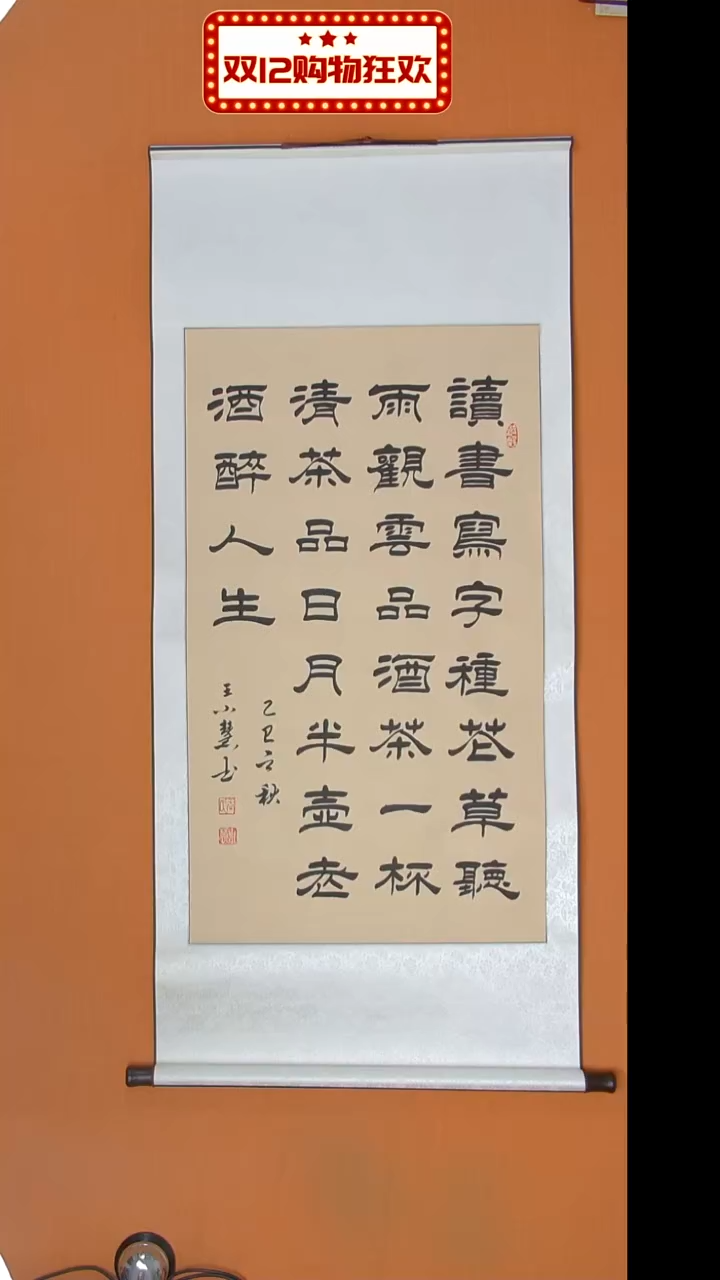 双12购物狂欢
讀書寫字種花草聽
雨觀雲品酒茶一杯
清茶品日月半壺老
酒醉人生
乙巳立秋
王小慧书